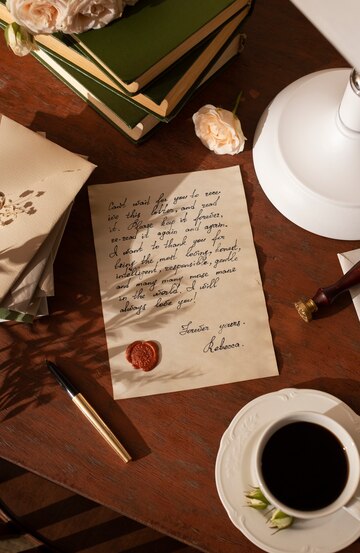 Can't wait for you to rece-
ive this letter, and read
it. Please keep it forever,
re-read it again and again.
I want to thank you for
being the most loving, honest,
intelligent, responsible, gentle
and many many more mane
in the world. I will
always love you!
Forever yours.
Rebecca.